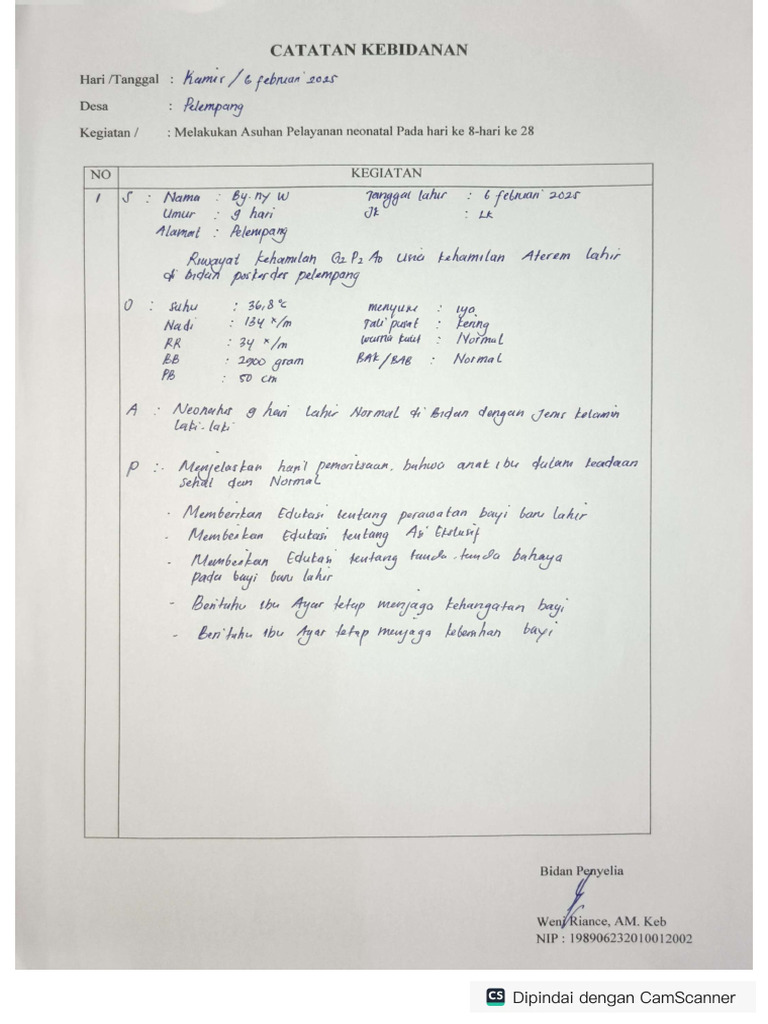 CATATAN KEBIDANAN
Hari /Tanggal : Kamis / 6 februari 2025
Desa : Pelempang
Kegiatan / : Melakukan Asuhan Pelayanan neonatal Pada hari ke 8-hari ke 28
NO KEGIATAN
1 S : Nama : By. ny W Tanggal lahir : 6 februari 2025
Umur : 9 hari Jk : LK
Alamat : Pelempang
Riwayat Kehamilan G2 P2 A0 Usia kehamilan Aterem lahir
di Bidan poskesdes pelempang
O : Suhu : 36,8 °c menyusu : iya
Nadi : 134 x/m Tali pusat : kering
RR : 34 x/m warna kulit : Normal
BB : 2900 gram BAK/BAB : Normal
PB : 50 cm
A : Neonatus 9 hari Lahir Normal di Bidan dengan Jenis kelamin
Laki-laki
P : - Menjelaskan hasil pemeriksaan, bahwa anak ibu dalam keadaan
sehat dan Normal
- Memberikan Edukasi tentang perawatan bayi baru lahir
- Memberikan Edukasi tentang Asi Ekslusif
- Memberikan Edukasi tentang tanda-tanda bahaya
pada bayi baru lahir
- Beritahu ibu Agar tetap menjaga kehangatan bayi
- Beritahu ibu Agar tetap menjaga kebersihan bayi
Bidan Penyelia
Weni Riance, AM. Keb
NIP : 198906232010012002
CS Dipindai dengan CamScanner